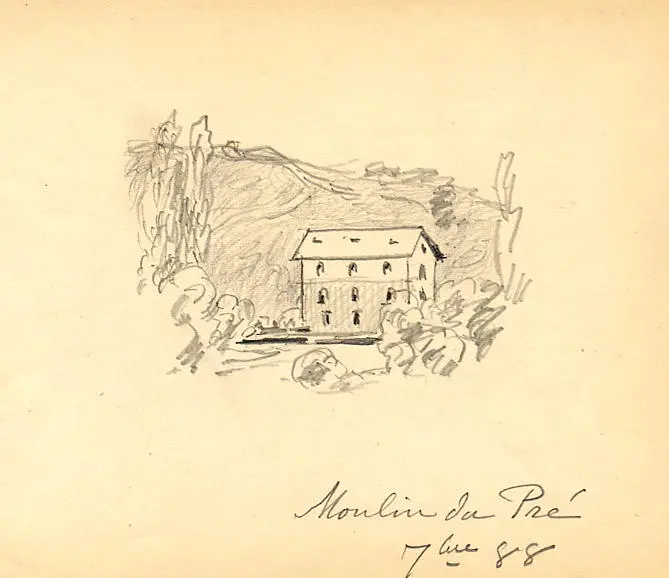 Moulin du Pré
7bre 88